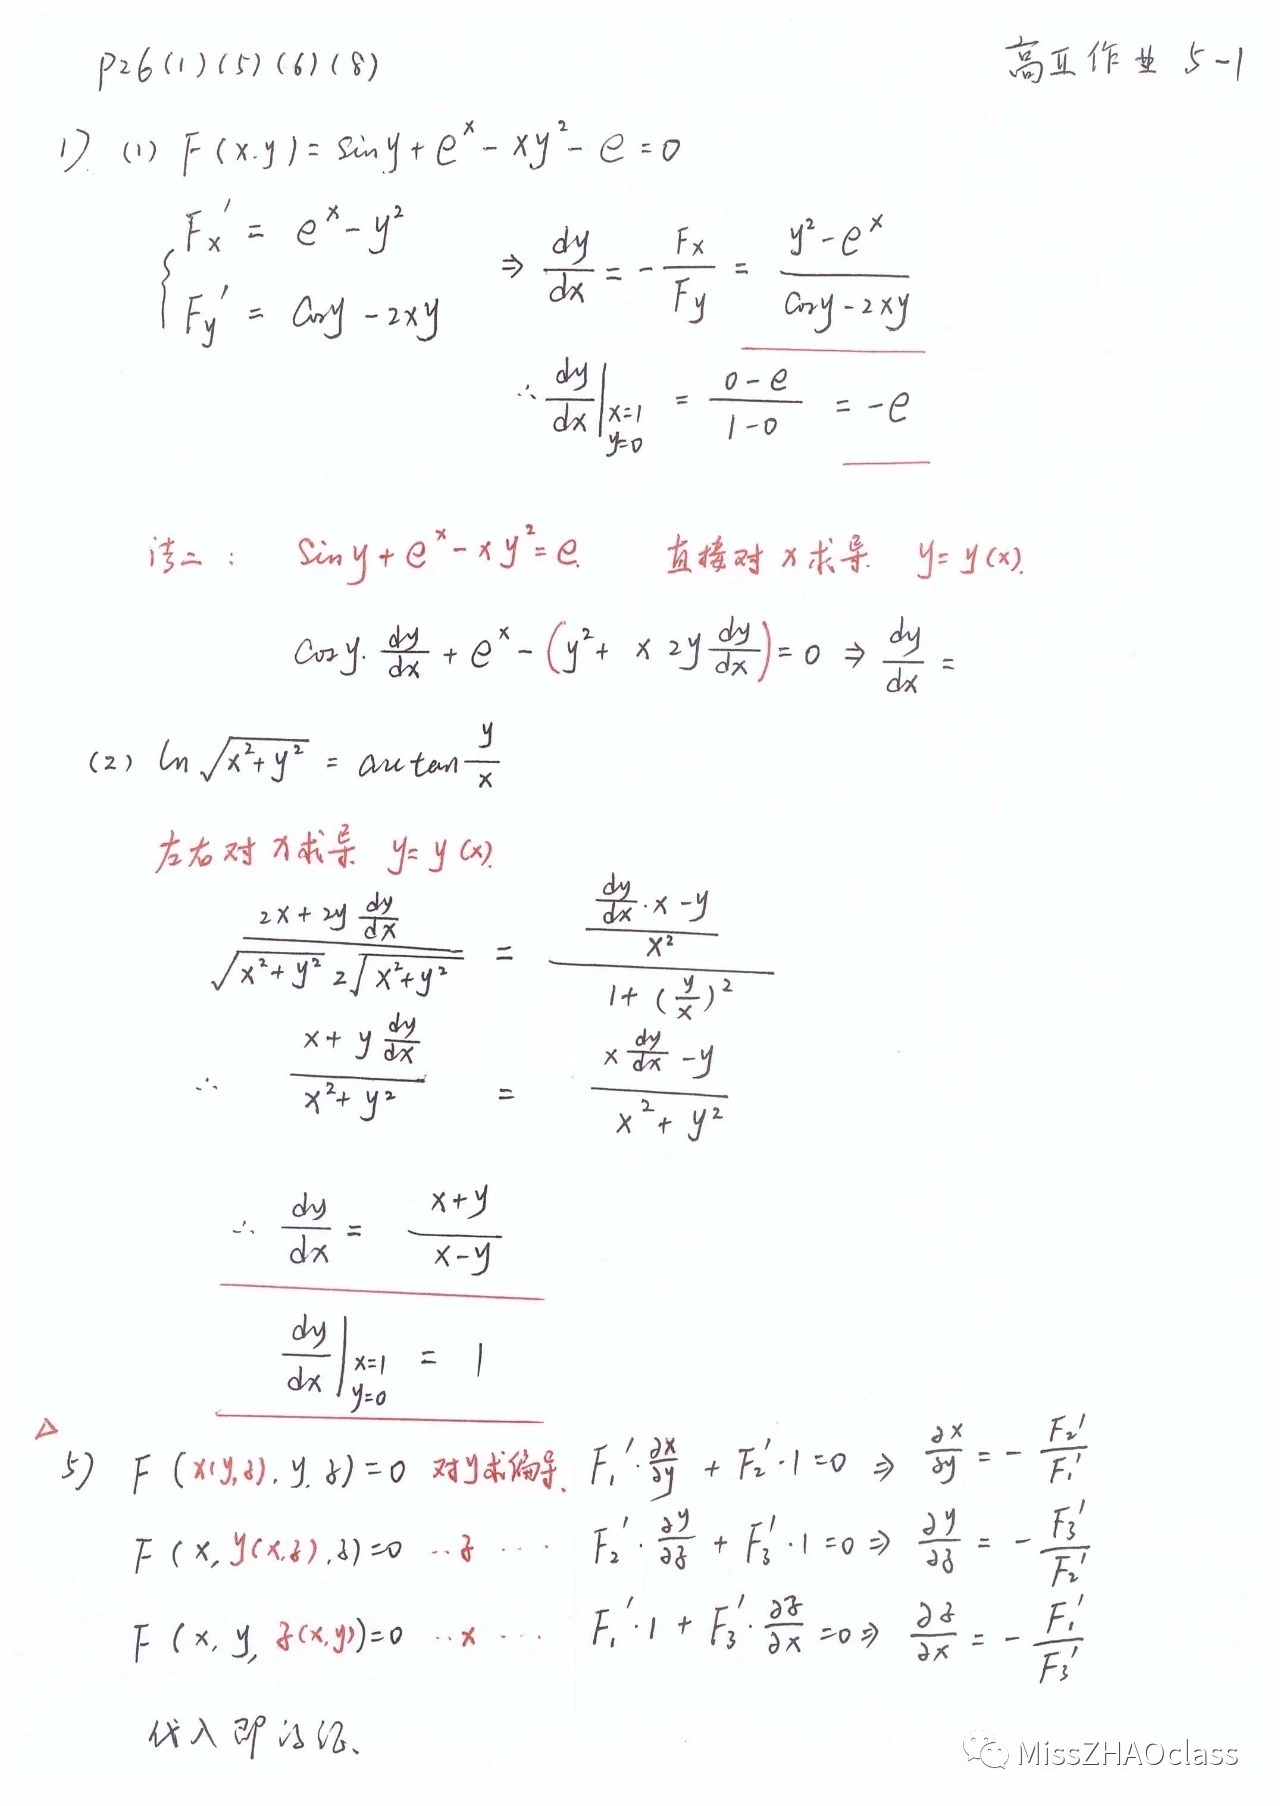 P26 (1) (5) (6) (8)
高工作业 5-1
1) (1) F(x.y) = siny + e^x - xy² - e = 0
Fx' = e^x - y²
Fy' = cosy - 2xy
⇒ dy/dx = - Fx/Fy = (y² - e^x)/(cosy - 2xy)
∴ dy/dx | x=1 y=0 = (0-e)/(1-0) = -e
法二: siny + e^x - xy² = e. 直接对x求导. y = y(x).
cosy · dy/dx + e^x - (y² + x 2y dy/dx) = 0 ⇒ dy/dx =
(2) ln √(x²+y²) = arctan y/x
左右对x求导 y = y(x).
(2x + 2y dy/dx)/(√(x²+y²) 2√(x²+y²)) = ((dy/dx · x - y)/x²)/(1 + (y/x)²)
∴ (x + y dy/dx)/(x²+y²) = (x dy/dx - y)/(x²+y²)
∴ dy/dx = (x+y)/(x-y)
dy/dx | x=1 y=0 = 1
△
5) F(x(y,z), y, z) = 0 对y求偏导. F₁' · ∂x/∂y + F₂' · 1 = 0 ⇒ ∂x/∂y = - F₂'/F₁'
F(x, y(x,z), z) = 0 ‥z ‥· F₂' · ∂y/∂z + F₃' · 1 = 0 ⇒ ∂y/∂z = - F₃'/F₂'
F(x, y, z(x,y)) = 0 ‥x ‥· F₁' · 1 + F₃' · ∂z/∂x = 0 ⇒ ∂z/∂x = - F₁'/F₃'
代入即得证.
MissZHAOclass